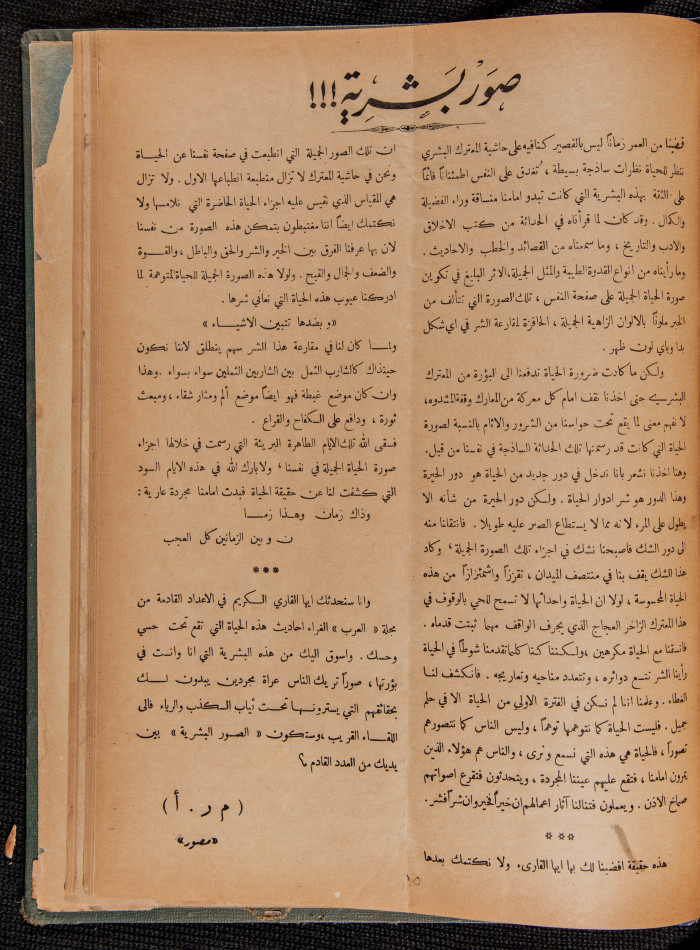 صور بشرية !!!
قضينا من العمر زماناً ليس بالقصير كنا فيه على حاشية المعترك البشري
ننظر للحياة نظرات ساذجة بسيطة ، تغدق على النفس اطمئناناً قائماً
على الثقة بهذه البشرية التي كانت تبدو امامنا منساقة وراء الفضيلة
والكمال . وقد كان لما قرأناه في الحداثة من كتب الاخلاق
والادب والتاريخ ، وما سمعناه من القصائد والخطب والاحاديث .
وما رأيناه من انواع القدوة الطيبة والمثل الجميلة، الاثر البليغ في تكوين
صورة الحياة الجميلة على صفحة النفس ، تلك الصورة التي تتألف من
الخير ملوناً بالالوان الزاهية الجميلة ، الحافزة لمقارعة الشر في اي شكل
بدا وباي لون ظهر .
ولكن ما كادت ضرورة الحياة تدفعنا الى البؤرة من المعترك
البشري حتى اخذنا نقف امام كل معركة من المعارك وقفة المشدوه،
لا نفهم معنى لما يقع تحت حواسنا من الشرور والاثام بالنسبة لصورة
الحياة التي كانت قد رسمتها تلك الحداثة الساذجة في نفسنا من قبل.
وهنا اخذنا نشعر باننا ندخل في دور جديد من الحياة هو دور الحيرة
وهذا الدور هو شر ادوار الحياة . ولكن دور الحيرة من شأنه الا
يطول على المرء لانه مما لا يستطاع الصبر عليه طويلا . فانتقلنا منه
الى دور الشك فاصبحنا نشك في اجزاء تلك الصورة الجميلة ، وكاد
هذا الشك يقف بنا في منتصف الميدان ، تقززاً واشمئزازاً من هذه
الحياة المحسوسة ، لولا ان الحياة واحداثها لا تسمح للحي بالوقوف في
هذا المعترك الزاخر العجاج الذي يجرف الواقف مهما ثبتت قدماه .
فانسقنا مع الحياة مكرهين ، ولكننا كنا كلما تقدمنا شوطاً في الحياة
رأينا الشر تتسع دوائره ، وتتعدد مناحيه وتعاريجه . فانكشف لنا
الغطاء . وعلمنا اننا لم نكن في الفترة الاولى من الحياة الا في حلم
جميل . فليست الحياة كما نتوهمها توهماً ، وليس الناس كما نتصورهم
تصوراً ، فالحياة هي هذه التي نسمع ونرى ، والناس هم هؤلاء الذين
يمرون امامنا ، فتقع عليهم عيننا المجردة ، ويتحدثون فتقرع اصواتهم
صماخ الاذن . ويعملون فتنالنا آثار اعمالهم ان خيراً فخير وان شراً فشر .
***
هذه حقيقة افضينا لك بها ايها القارىء ولا نكتمك بعدها
ان تلك الصور الجميلة التي انطبعت في صفحة نفسنا عن الحياة
ونحن في حاشية المعترك لا تزال منطبعة انطباعها الاول . ولا تزال
هي المقياس الذي نقيس عليه اجزاء الحياة الحاضرة التي نلامسها ولا
نكتمك ايضاً اننا مغتبطون بتمكن هذه الصورة من نفسنا
لان بها عرفنا الفرق بين الخير والشر والحق والباطل ، والقوة
والضعف والجمال والقبح . ولولا هذه الصورة الجميلة للحياة المتوهمة لما
ادركنا عيوب هذه الحياة التي نعاني شرها .
« وبضدها تتبين الاشياء »
ولما كان لنا في مقارعة هذا الشر سهم ينطلق لاننا نكون
حينذاك كالشارب الثمل بين الشاربين الثملين سواء بسواء . وهذا
وان كان موضع غبطة فهو ايضاً موضع ألم ومثار شقاء ، ومبعث
ثورة ، ودافع على الكفاح والقراع .
فسقى الله تلك الايام الطاهرة البريئة التي رسمت في خلالها اجزاء
صورة الحياة الجميلة في نفسنا ، ولا بارك الله في هذه الايام السود
التي كشفت لنا عن حقيقة الحياة فبدت امامنا مجردة عارية :
وذاك زمان وهذا زما
ن وبين الزمانين كل العجب
***
وانا سنحدثك ايها القاري الكريم في الاعداد القادمة من
مجلة « العرب » الغراء احاديث هذه الحياة التي تقع تحت حسي
وحسك . واسوق اليك من هذه البشرية التي انا وانت في
بؤرتها ، صوراً تريك الناس عراة مجردين يبدون لك
بحقائقهم التي يسترونها تحت ثياب الكذب والرياء فالى
اللقاء القريب ، وستكون « الصور البشرية » بين
يديك من العدد القادم ؟
( م ر . أ )
«مصور»